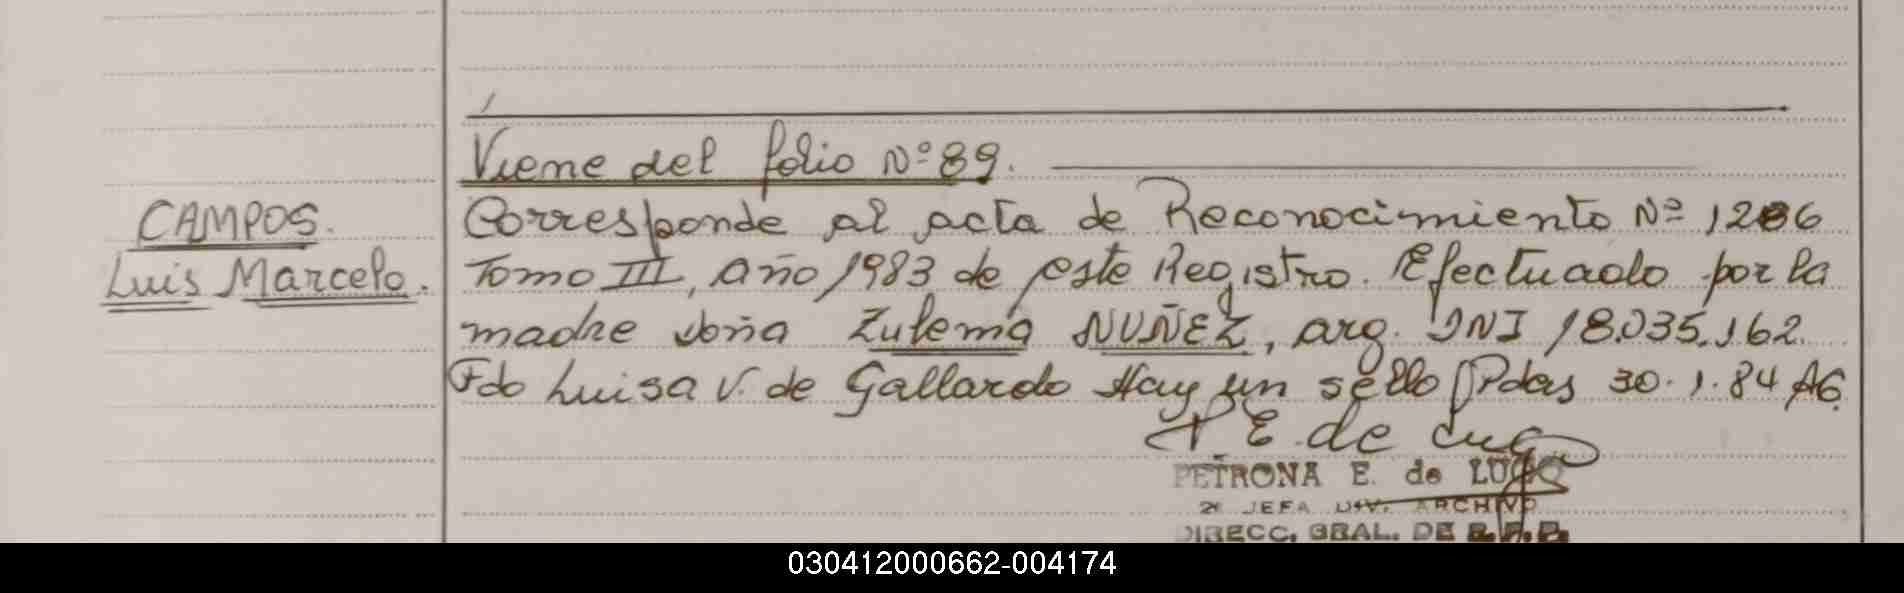 Viene del folio Nº 89.
CAMPOS.
Luis Marcelo.
Corresponde al acta de Reconocimiento Nº 1286
Tomo III, Año 1983 de este Registro. Efectuado por la
madre doña Zulema NUÑEZ, arg. DNI 18.035.162.
Fdo Luisa V. de Gallardo Hay un sello Pdas 30.1.84 AG
P E. de Lugo
PETRONA E. de LUGO
2ª JEFA DIV. ARCHIVO
DIRECC. GRAL. DE R.P.P.
030412000662-004174